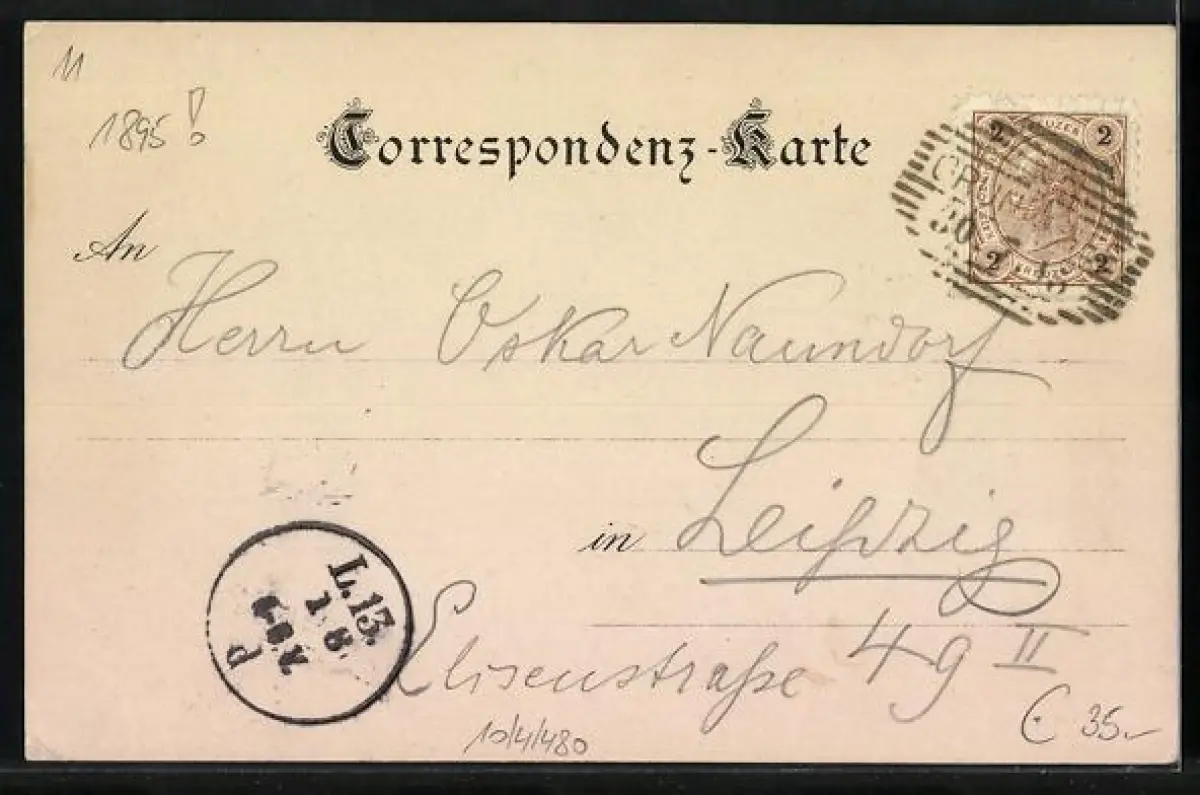 11
1895!
Correspondenz-Karte
2 KREUZER 2
2 2
30
An
Herrn Oskar Naundorf
in Leipzig
L.13.
1 8
Elisenstraße 49 II
10/4/480
€ 35.-